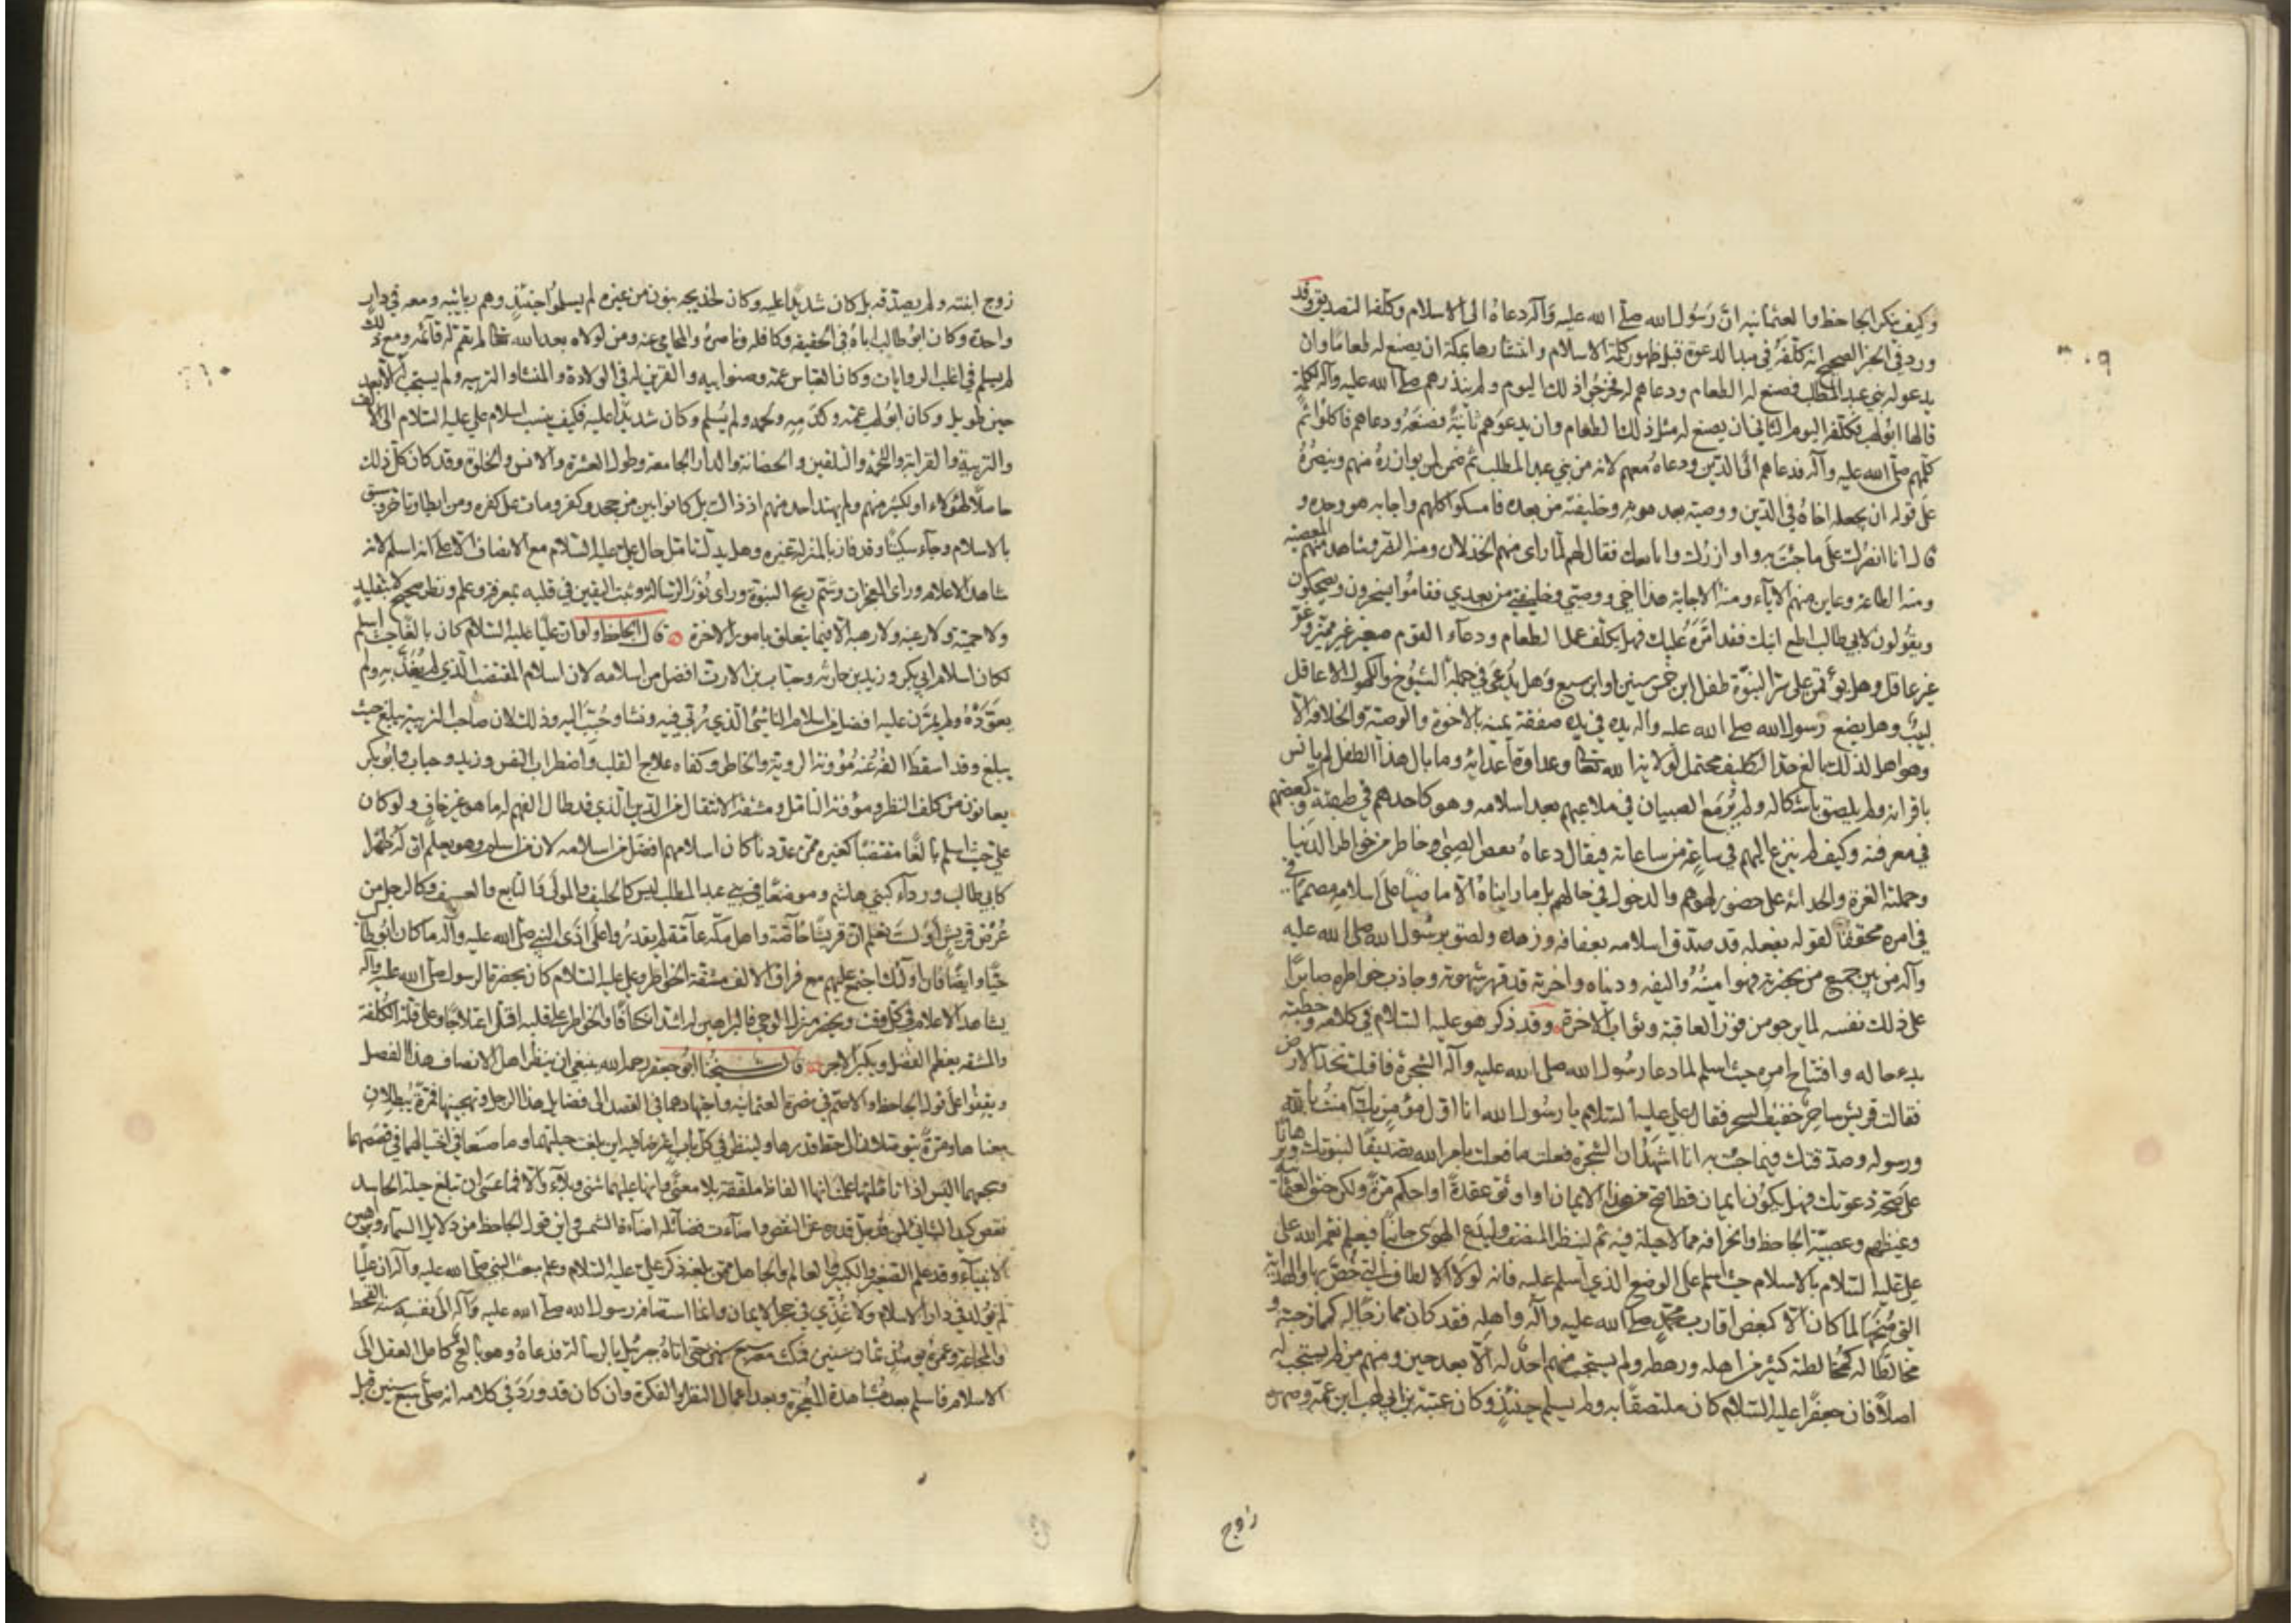 وكيف ينكر الجاحظ والعثمانيه ان رسول الله صلى الله عليه وآله دعاه الى الاسلام وكلفه التصديق وقد
ورد في الخبر الصحيح انه كلفه في مبدا الدعوة قبل ظهور كلمة الاسلام وانتشارها بمكة ان يصنع له طعاما وان
يدعو له بني عبد المطلب فصنع له الطعام ودعاهم له فخرجوا ذلك اليوم ولم ينذرهم صلى الله عليه وآله لكلمة
قالها ابو لهب فكلفه اليوم الثاني ان يصنع له مثل ذلك الطعام وان يدعوهم ثانية فصنعه ودعاهم فاكلوا ثم
كلمهم صلى الله عليه وآله فدعاهم الى الدين ودعاه معهم لانه من بني عبد المطلب ثم ضمن لمن يوازره منهم وينصره
على قوله ان يجعله اخاه في الدين ووصيه بعد موته وخليفته من بعده فامسكوا كلهم واجابه هو وحده و
قال انا انصرك على ما جئت به واوازرك وابايعك فقال لهم لما راى منهم الخذلان ومنه النصر وشاهد منهم المعصية
ومنه الطاعة وعاين منهم الاباء ومنه الاجابة هذا اخي ووصيي وخليفتي من بعدي فقاموا يسخرون ويضحكون
ويقولون لابي طالب اطع ابنك فقد امره عليك فهل يكلف عمل الطعام ودعاء القوم صغير غير مميز وغر
غير عاقل وهل يؤتمن على سر النبوة طفل ابن خمس سنين او ابن سبع وهل يدعى في جملة الشيوخ والكهول الا عاقل
لبيب وهل يضع رسول الله صلى الله عليه واله يده في يده ويعطيه صفقة يمينه بالاخوة والوصية والخلافة الا
وهو اهل لذلك بالغ حد التكليف محتمل لولاية الله تعالى وعداوة أعدائه وما بال هذا الطفل لم يانس
باقرانه ولم يلصق باشكاله ولم ير مع الصبيان في ملاعبهم بعد اسلامه وهو كاحدهم في طبقته كبعضهم
في معرفته وكيف لم ينزع اليهم في ساعة من ساعاته فيقال دعاه بعض الصبى وخاطر من خواطر الدنيا
وحملته الغرة والحداثة على حضور لهوهم والدخول في حالهم بل ما رايناه الا ماضيا على اسلامه مصمما في
في امره محققا لقوله بفعله قد صدق اسلامه بعفافه وزهده ولصق برسول الله صلى الله عليه
وآله من بين جميع من بحضرته فهو امينه واليفه في دنياه واخرته قد قهر شهوته وجاذب خواطره صابرا
على ذلك نفسه لما يرجو من فوز العاقبة وثواب الاخرة وقد ذكر هو عليه السلام في كلامه وخطبه
بدء حاله وافتتاح امره حيث اسلم لما دعا رسول الله صلى الله عليه وآله الشجرة فاقبلت تخد الارض
فقالت قريش ساحر خفيف السحر فقال علي عليه السلام يا رسول الله انا اول مؤمن بك آمنت بالله
ورسوله وصدقتك فيما جئت به انا اشهد ان الشجرة فعلت ما فعلت بامر الله تصديقا لنبوتك وبرهانا
على صحة دعوتك فهل يكون ايمان قط اصح من هذا الايمان او اوثق عقدة او احكم مرة ولكن حنق العثمانية
وغيظهم وعصبية الجاحظ وانحرافه مما لا حيلة فيه ثم لينظر المنصف وليدع الهوى جانبا فيعلم نعمة الله على
علي عليه السلام بالاسلام حيث اسلم على الوضع الذي اسلم عليه فانه لولا الالطاف التي خص بها والهداية
التي منحها لما كان الا كبعض اقارب محمد صلى الله عليه وآله واهله فقد كان ممازجا له كممازجته و
مخالطا له كمخالطة كثير من اهله ورهطه ولم يستجب منهم احد له الا بعد حين ومنهم من لم يستجب له
اصلا فان جعفرا عليه السلام كان ملتصقا به ولم يسلم حينئذ وكان عتبة بن ابي لهب ابن عمه وصهره
زوج
زوج ابنته ولم يصدقه بل كان شديدا عليه وكان لخديجه بنون من غيره لم يسلموا حينئذ وهم ربايبه ومعه في دار
واحدة وكان ابو طالب اباه في الحقيقه وكافله وناصره والمحامي عنه ومن لولاه بعد الله تعالى لم تقم له قائمه ومع ذلك
لم يسلم في اغلب الروايات وكان العباس عمه وصنو ابيه والقرين له في الولادة والمنشا والتربيه ولم يستجب له الا بعد
حين طويل وكان ابو لهب عمه وكدمه ولحمه ولم يسلم وكان شديدا عليه فكيف ينسب اسلام علي عليه السلام الى الالف
والتربية والقرابة واللحمة والتلقين والحضانة والدار الجامعة وطول العشرة والانس والخلوة وقد كان كل ذلك
حاصلا لهؤلاء او لكثير منهم ولم يهتد احد منهم اذ ذاك بل كانوا بين من جحد وكفر ومات على كفره ومن ابطا وتاخر وسبق
بالاسلام وجاء سكيتا وقد فاز بالمنزلة غيره وهل يدل تامل حال علي عليه السلام مع الانصاف الا على انه اسلم لانه
شاهد الاعلام وراى المعجزات وشم ريح النبوة وراى نور الرسالة وثبت اليقين في قلبه بمعرفة وعلم ونظر صحيح لا بتقليد
ولا حمية ولا رغبة ولا رهبة الا فيما يتعلق بامور الاخرة قال الجاحظ ولو ان عليا عليه السلام كان بالغا حيث اسلم
لكان اسلام ابي بكر وزيد بن حارثه وخباب بن الارت افضل من اسلامه لان اسلام المقتضب الذي لم يغذ به ولم
يعوده ولم يمرن عليه افضل من اسلام الناشئ الذي ربي فيه ونشا وحبب اليه وذلك لان صاحب التربية يبلغ حيث
يبلغ وقد اسقط الفه عنه مؤونة الروية والخاطر وكفاه علاج القلب واضطراب النفس وزيد وخباب وابو بكر
يعانون من كلفة النظر ومؤونة التامل ومشقة الانتقال من الدين الذي قد طال الفهم له ما هو غير خاف ولو كان
علي حيث اسلم بالغا مقتضبا كغيره ممن عددنا كان اسلامهم افضل من اسلامه لان من اسلم وهو يعلم ان له ظهرا
كابي طالب وردءا كبني هاشم وموضعا في بني عبد المطلب ليس كالحليف والمولى والتابع والعسيف وكالرجل من
عرض قريش أو لست تعلم ان قريشا خاصة واهل مكة عامة لم يقدروا على اذى النبي صلى الله عليه وآله ما كان ابو طالب
حيا وايضا فان اولئك اجتمع عليهم مع فراق الالف مشقة الخواطر وعلي عليه السلام كان بحضرة الرسول صلى الله عليه وآله
يشاهد الاعلام في كل وقت ويحضر منزل الوحي فالبراهين له اشد انكشافا والخواطر على قلبه اقل اعتلاجا وعلى قدر الكلفة
والمشقه يعظم الفضل ويكثر الاجر قال شيخنا ابو جعفر رحمه الله ينبغي ان ينظر اهل الانصاف هذا الفصل
ويقفوا على قول الجاحظ والاصم في نصرة العثمانيه واجتهادهما في القصد الى فضايل هذا الرجل وتهجينها فمرة يبطلان
معناها ومرة يتوصلان الى حط قدرها ولينظر في كل باب اعترضا فيه اين بلغت حيلتهما وما صنعا في احتيالهما في قصصهما
وسجعهما اليس اذا تاملتها علمت انها الفاظ ملفقة بلا معنى وانها عليها شجى وبلاء والا فما عسى ان تبلغ حيلة الحاسد
ويغني كيد الشاني لمن قد جل قدره عن النقص واضاءت فضائله اضاءة الشمس واين قول الجاحظ من دلايل السماء وبراهين
الانبياء وقد علم الصغير والكبير والعالم والجاهل ممن بلغه ذكر علي عليه السلام وعلم مبعث النبي صلى الله عليه وآله ان عليا
لم يولد في دار الاسلام ولا غذي في حجر الايمان وانما استضافه رسول الله صلى الله عليه وآله الى نفسه سنة القحط
والمجاعة وعمره يومئذ ثمان سنين فمكث معه سبع سنين حتى اتاه جبرئيل بالرسالة فدعاه وهو بالغ كامل العقل الى
الاسلام فاسلم بعد مشاهدة المعجزة وبعد اعمال النظر والفكرة وان كان قد ورد في كلامه انه صلى سبع سنين قبل